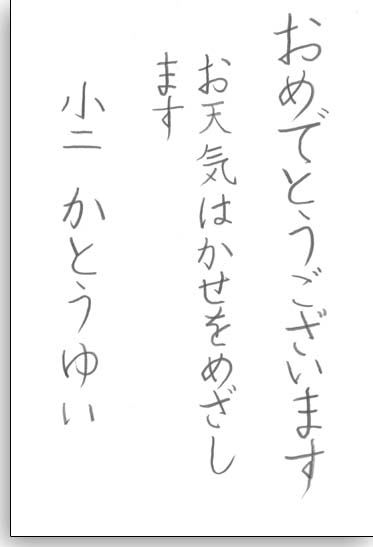 おめでとうございます
お天気はかせをめざし
ます
小二 かとうゆい